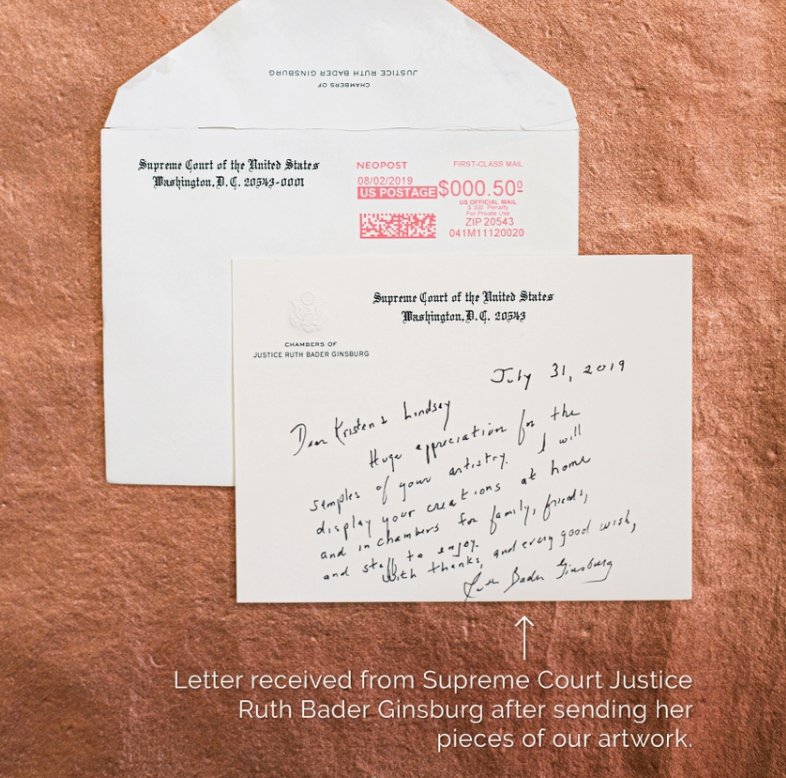 CHAMBERS OF
JUSTICE RUTH BADER GINSBURG
Supreme Court of the United States
Washington, D. C. 20543-0001
NEOPOST
FIRST-CLASS MAIL
08/02/2019
US POSTAGE $000.50⁰
US OFFICIAL MAIL
$ 300 Penalty
For Private Use
ZIP 20543
041M11120020
Supreme Court of the United States
Washington, D. C. 20543
CHAMBERS OF
JUSTICE RUTH BADER GINSBURG
July 31, 2019
Dear Kristen & Lindsay
Huge appreciation for the
samples of your artistry. I will
display your creations at home
and in chambers for family, friends,
and staff to enjoy.
With thanks, and every good wish,
Ruth Bader Ginsburg
Letter received from Supreme Court Justice
Ruth Bader Ginsburg after sending her
pieces of our artwork.